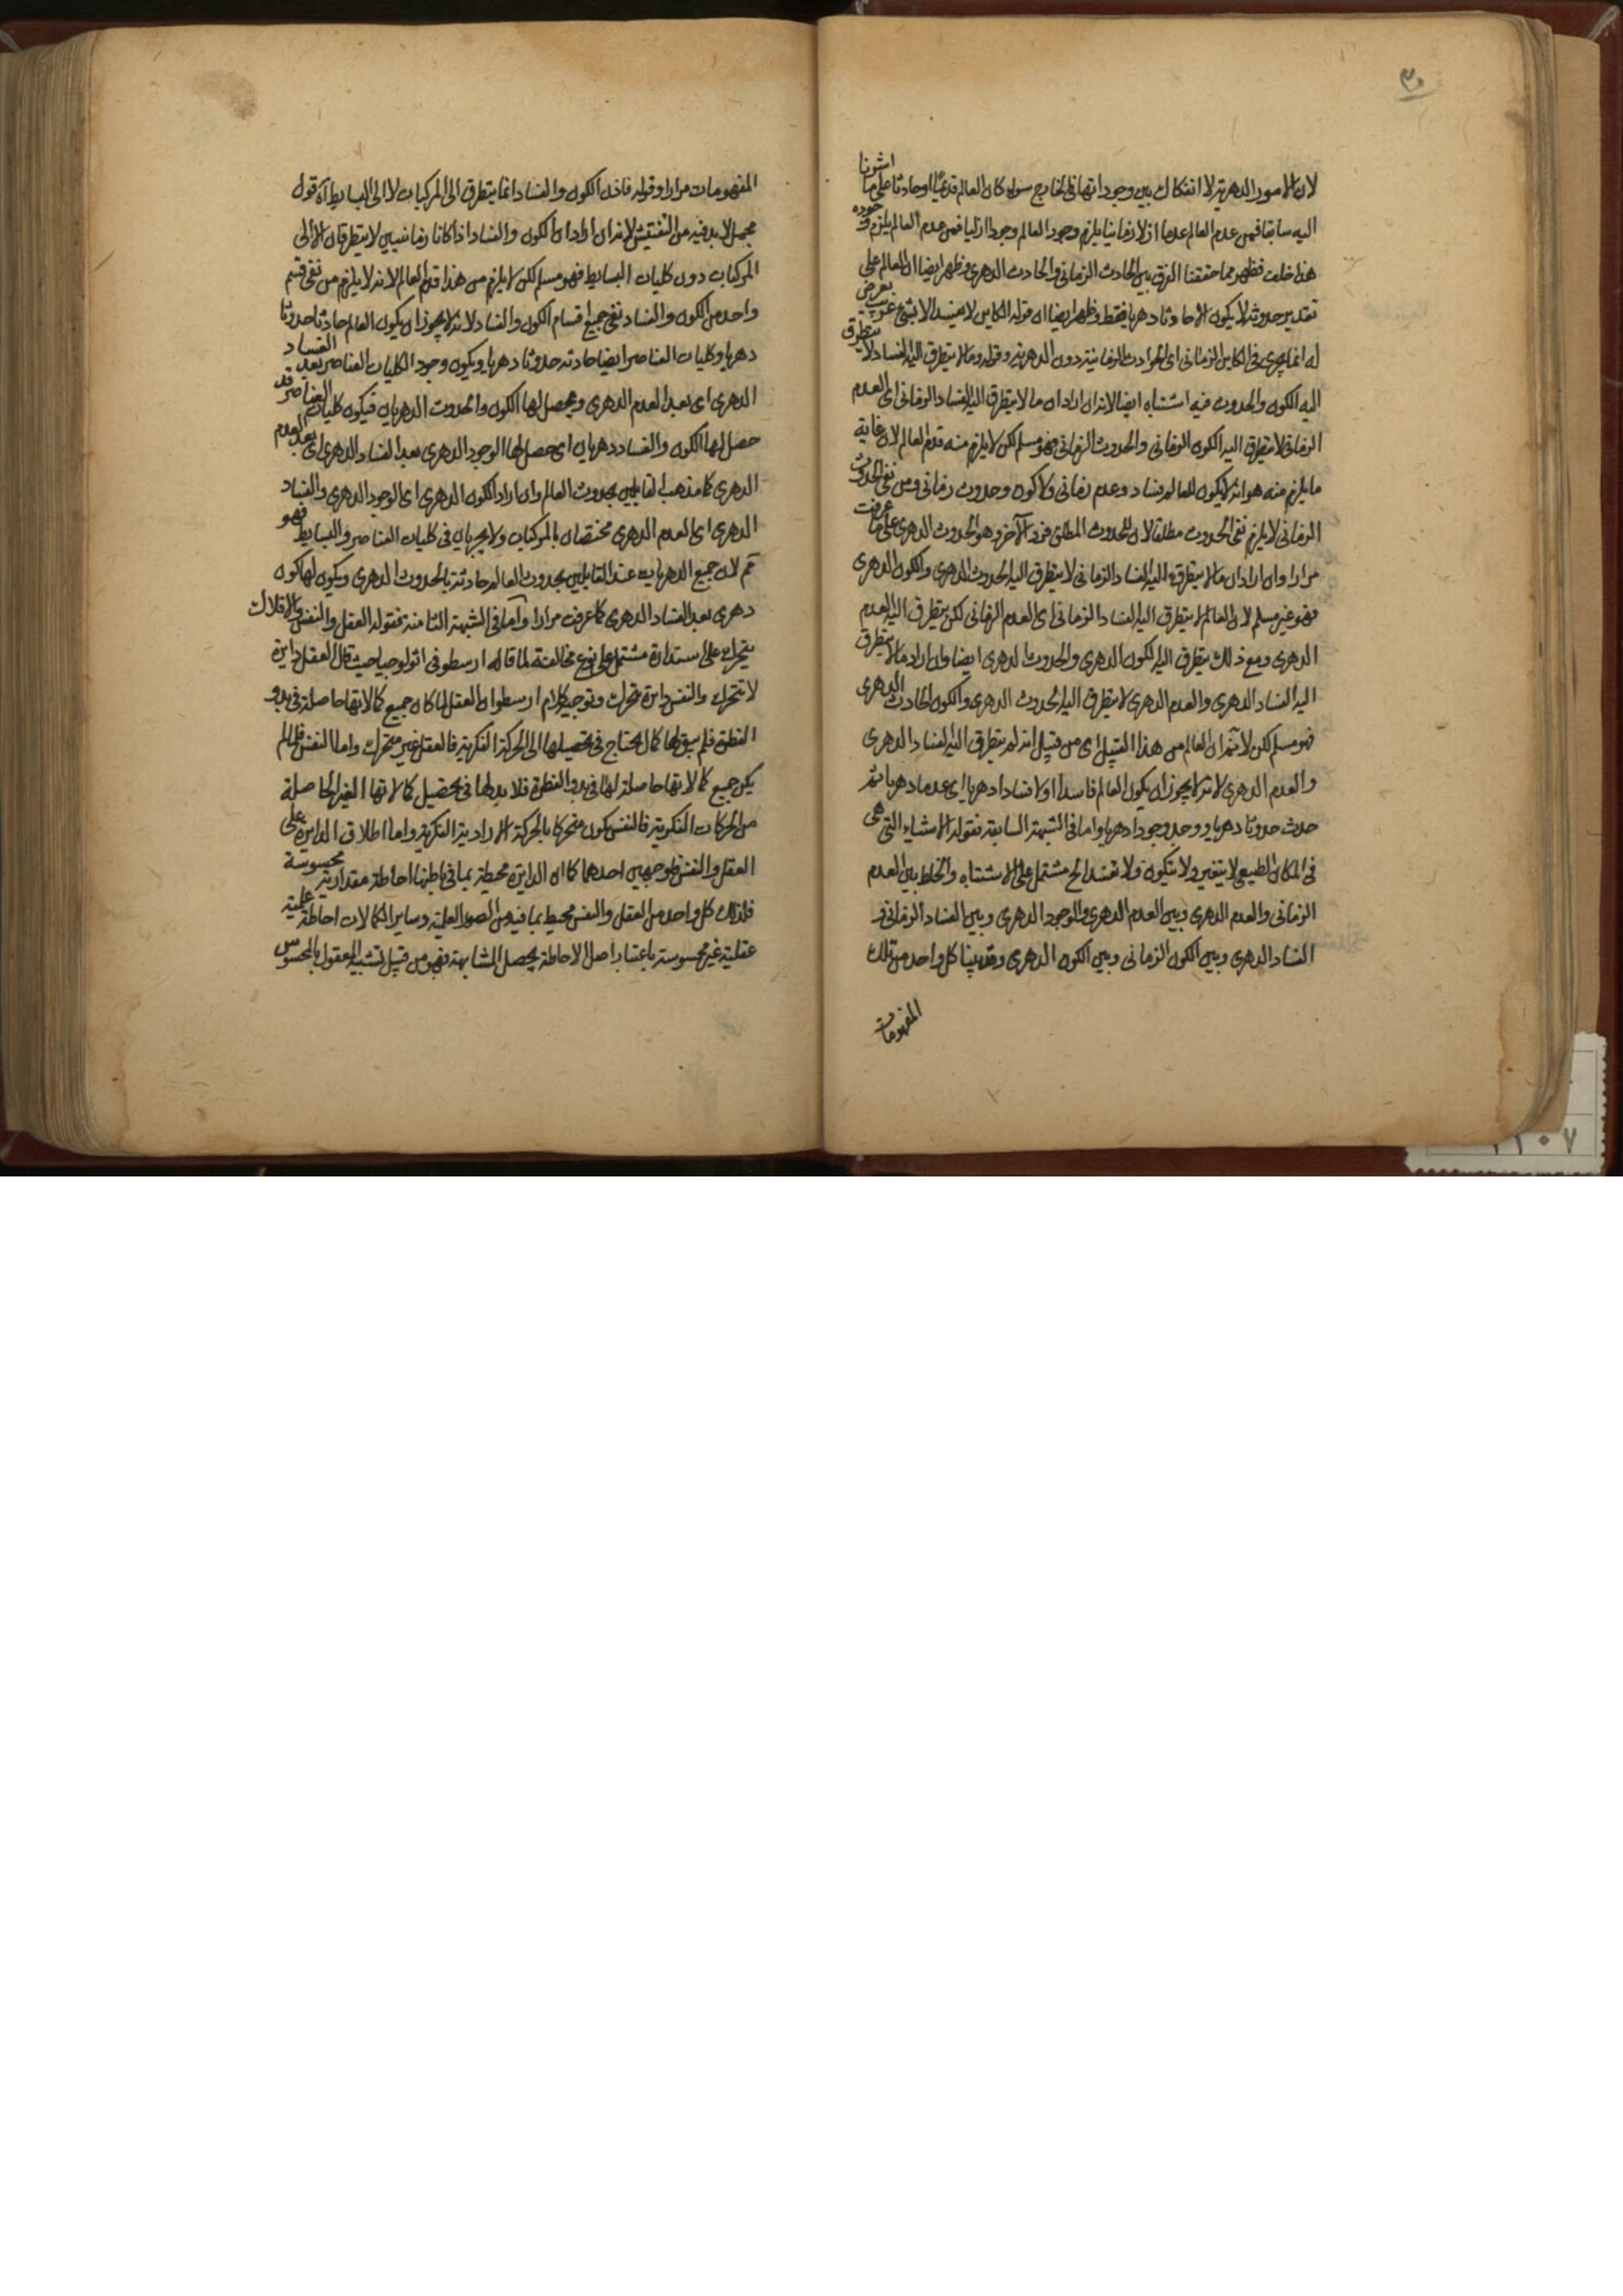 ٣٠
لان الامور الدهرية لا انفكاك بين وجوداتها فى الخارج سواء كان العالم قديما او حادثا على ما اشرنا
اليه سابقا فمن عدم العالم عدما ازلا زمانيا يلزم وجود العالم وجودا ازليا فمن عدم العالم يلزم وجوده
هذا خلف فظهر مما حققنا الفرق بين الحادث الزمانى والحادث الدهرى وظهر ايضا ان العالم على
تقدير حدوثه لا يكون الا حادثا دهريا فقط وظهر ايضا ان قوله الكاين لا يفسد الا بشئ غريب يعرض
له انما يجرى فى الكاين الزمانى اى الحوادث الزمانية دون الدهرية وقوله وما لا يتطرق اليه الفساد لا يتطرق
اليه الكون والحدوث فيه اشتباه ايضا لانه ان اراد ان ما لا يتطرق اليه الفساد الزمانى اى العدم
الزمانى لا يتطرق اليه الكون الزمانى والحدوث الزمانى فهو مسلم لكن لا يلزم منه قدم العالم لان غاية
ما يلزم منه هو انه لا يكون للعالم فساد وعدم زمانى ولا كون وحدوث زمانى ومن نفى الحدوث
الزمانى لا يلزم نفى الحدوث مطلقا لان للحدوث المطلق فردا آخر وهو الحدوث الدهرى على ما عرفت
مرارا وان اراد ان ما لا يتطرق اليه الفساد الزمانى لا يتطرق اليه الحدوث الدهرى والكون الدهرى
فهو غير مسلم لان العالم لا يتطرق اليه الفساد الزمانى اى العدم الزمانى لكن يتطرق اليه العدم
الدهرى ومع ذلك يتطرق اليه الكون الدهرى والحدوث الدهرى ايضا وان اراد ما لا يتطرق
اليه الفساد الدهرى والعدم الدهرى لا يتطرق اليه الحدوث الدهرى والكون الحادث الدهرى
فهو مسلم لكن لا نم ان العالم من هذا القبيل اى من قبيل انه لم يتطرق اليه الفساد الدهرى
والعدم الدهرى لانه لا يجوز ان يكون العالم فاسدا اولا فسادا دهريا اى عدما دهريا ثم
حدث حدوثا دهريا ووجد وجودا دهريا واما فى الشبهة السابقة فقوله الاشياء التى هى
فى المكان الطبيعى لا يتغير ولا يتكون ولا تفسد الخ مشتمل على الاشتباه والخلط بين العدم
الزمانى والعدم الدهرى وبين العدم الدهرى والوجود الدهرى وبين الفساد الزمانى و
الفساد الدهرى وبين الكون الزمانى وبين الكون الدهرى وقد بينا كل واحد من تلك
المفهومات
المفهومات مرارا وقوله فاذن الكون والفساد انما يتطرق الى المركبات لا الى البسايط آه قول
مجمل لا بد فيه من التفتيش لانه ان اراد ان الكون والفساد اذا كانا زمانيين لا يتطرقان الا الى
المركبات دون كليات البسايط فهو مسلم لكن لا يلزم من هذا قدم العالم لانه لا يلزم من نفى قسم
واحد من الكون والفساد نفى جميع اقسام الكون والفساد لانه لا يجوز ان يكون العالم حادثا حدوثا
دهريا وكليات العناصر ايضا حادثة حدوثا دهريا ويكون وجود الكليات العناصر بعد الفساد
الدهرى اى بعد العدم الدهرى ويحصل لها الكون والحدوث الدهريان فيكون كليات العناصر قد
حصل لها الكون والفساد دهريان اى حصل لها الوجود الدهرى بعد الفساد الدهرى اى بعد العدم
الدهرى كما مذهب القايلين بحدوث العالم وان اراد الكون الدهرى اى الوجود الدهرى والفساد
الدهرى اى العدم الدهرى مختصان بالمركبات ولا يجريان فى كليات العناصر والبسايط فهو
ثم لان جميع الدهريات عند القايلين بحدوث العالم حادثة بالحدوث الدهرى ويكون لها كون
دهرى بعد الفساد الدهرى كما عرفت مرارا واما فى الشبهة الثامنة فقوله العقل والنفس والافلاك
يتحرك على استدارة مشتمل على نوع مخالفة لما قاله ارسطو فى اثولوجيا حيث قال العقل دايرة
لا تتحرك والنفس دايرة تتحرك وتوجيه كلام ارسطو ان العقل لما كان جميع كمالاتها حاصلة فى بدو
الفطرة فلم يبق لها كمال يحتاج فى تحصيلها الى الحركة الفكرية فالعقل غير متحرك واما النفس فلما لم
يكن جميع كمالاتها حاصلة لها فى بدو الفطرة فلا بد لها فى تحصيل كمالاتها الغير الحاصلة
من الحركات الفكرية فالنفس يكون متحركا بالحركة الارادية الفكرية واما اطلاق الدايرة على
العقل والنفس فلوجهين احدهما كما ان الدايرة محيطة بما فى باطنها احاطة مقدارية محسوسة
فكذلك كل واحد من العقل والنفس محيط بما فيه من الصور العلمية وساير الكمالات احاطة علمية
عقلية غير محسوسة باعتبار اصل الاحاطة يحصل المشابهة فهو من قبيل تشبيه المعقول بالمحسوس